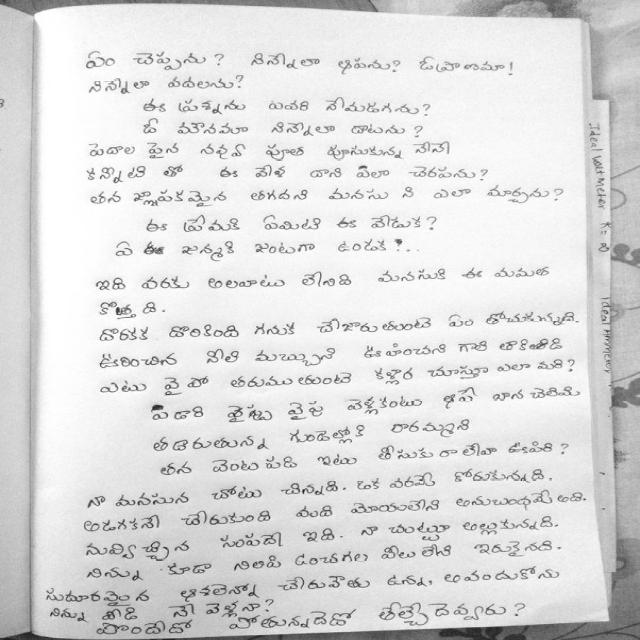 ఏం చెప్పను? నిన్నెలా ఆపను? ఓ ప్రాణమా!
నిన్నెలా వదలను?
ఈ ప్రశ్నను ఎవరి నేమడగను?
ఓ మౌనమా నిన్నెలా దాటను?
పెదాల పైన నవ్వు పూత పూసుకున్న నేనే
కన్నీటి తో ఈ వేళ దాని ఎలా చెరపను?
తన జ్ఞాపకమైన తగదని మనసు ని ఎలా మార్చను?
ఈ ప్రేమకి ఏమిటి ఈ వేడుక?
ఏ జన్మకి జంటగా ఉండక?..
ఇది వరకు అలవాటు లేనిది మనసుకి ఈ మమత
కొత్త ది.
దొరకక దొరికింది గనుక చేజారుతుంటె ఏం తోచకున్నది.
ఊరించిన నీలి మబ్బుని ఊహించని గాలి తాకితిడి
ఎటు వైపో తరుముతుంటె కళ్లార చూస్తూ ఎలా మరి?
ఎడారి వైపు వెళ్లకంటు ఆపే వాన చెలిమి
తడారుతున్న గుండెల్లోకి రారమ్మని
తన వెంట పడి ఇటు తీసుకు రా లేవా ఊపిరి?
నా మనసున చోటు చిన్నది. ఒక వరమే కోరుకున్నది.
అడగకనే చేరుకుంది మది మోయలేని అనుబంధమే అది.
నువ్విచ్చిన సంపదే ఇది. నా చుట్టూ అల్లుకున్నది.
నిన్ను కూడా నిలిపి ఉంచగల వీలు లేని ఇరుకైనది.
సుదూరమైన ఆశలెన్నో చేరువౌతు ఉన్న, అవందుకోను
నిన్ను వీడి నే వెళ్లనా?
పొందేదేదో పోతున్నదేదో తేల్చేదెవ్వరు?
Ideal Voltmeter R = ∞
Ideal Ammeter